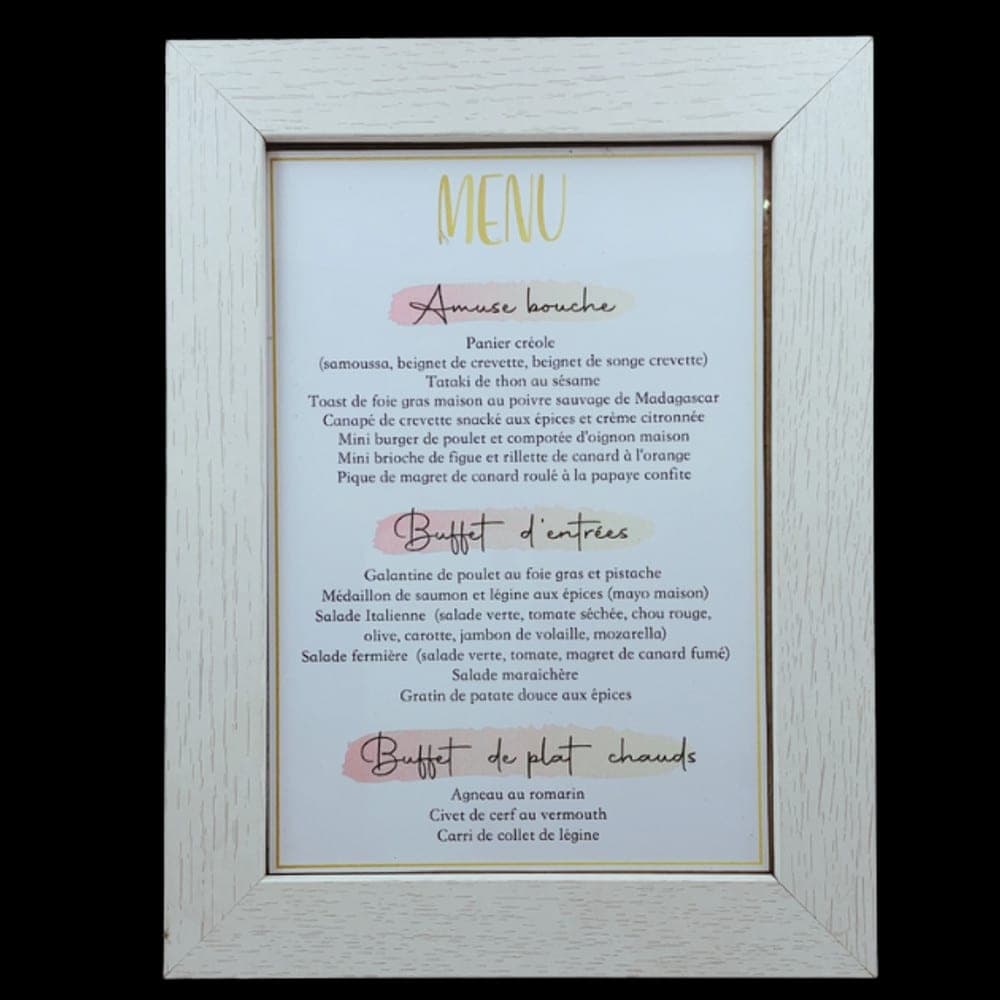 MENU
Amuse bouche
Panier créole
(samoussa, beignet de crevette, beignet de songe crevette)
Tataki de thon au sésame
Toast de foie gras maison au poivre sauvage de Madagascar
Canapé de crevette snacké aux épices et crème citronnée
Mini burger de poulet et compotée d'oignon maison
Mini brioche de figue et rillette de canard à l'orange
Pique de magret de canard roulé à la papaye confite
Buffet d'entrées
Galantine de poulet au foie gras et pistache
Médaillon de saumon et légine aux épices (mayo maison)
Salade Italienne (salade verte, tomate séchée, chou rouge,
olive, carotte, jambon de volaille, mozarella)
Salade fermière (salade verte, tomate, magret de canard fumé)
Salade maraichère
Gratin de patate douce aux épices
Buffet de plat chauds
Agneau au romarin
Civet de cerf au vermouth
Carri de collet de légine